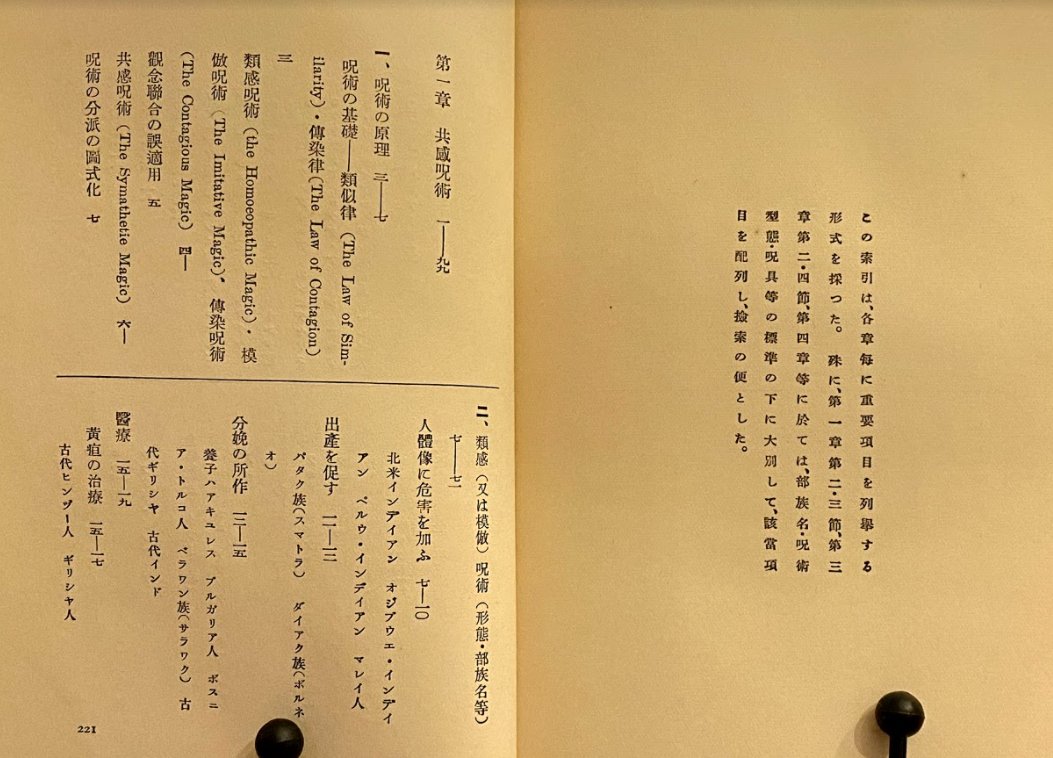 この索引は、各章每に重要項目を列擧する
形式を採つた。 殊に、第一章第二・三節、第三
章第二・四節、第四章等に於ては、部族名・呪術
型態・呪具等の標準の下に大別して、該當項
目を配列し、檢索の便とした。
第一章 共感呪術 一——九九
一、呪術の原理 三——七
呪術の基礎——類似律 (The Law of Sim-
ilarity)・傳染律 (The Law of Contagion)
三
類感呪術 (the Homoeopathic Magic)・模
倣呪術 (The Imitative Magic)、傳染呪術
(The Contagious Magic) 四—
觀念聯合の誤適用 五
共感呪術 (The Symathetie Magic) 六—
呪術の分派の圖式化 七
二、類感(又は模倣)呪術(形態・部族名等)
七——七一
人體像に危害を加ふ 七—一〇
北米インデイアン オジブウエ・インデイ
アン ペルウ・インディアン マレイ人
出產を促す 一一—一三
バタク族(スマトラ) ダイアク族(ボルネ
オ)
分娩の所作 一三—一五
養子ハアキユレス ブルガリア人 ボスニ
ア・トルコ人 ベラワン族(サラワク) 古
代ギリシヤ 古代インド
醫療 一五—一九
黃疸の治療 一五—一七
古代ヒンヅー人 ギリシヤ人
221